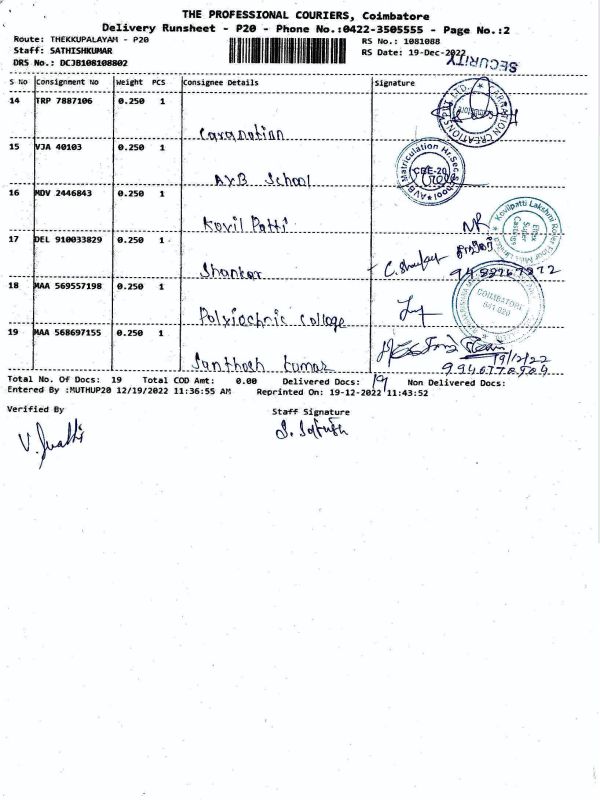 THE PROFESSIONAL COURIERS, Coimbatore
Delivery Runsheet - P20 - Phone No.:0422-3505555 - Page No.:2
Route: THEKKUPALAYAM - P20 RS No.: 1081088
Staff: SATHISHKUMAR RS Date: 19-Dec-2022
DRS No.: DCJB108108802 SECURITY
S No Consignment No Weight PCS Consignee Details Signature
14 TRP 7887106 0.250 1
Caranation
CARNATION CREATIONS PVT LTD.
15 VJA 40103 0.250 1
AVB School
AVB Matriculation Hr.Sec.School CBE-20
16 MDV 2446843 0.250 1
Kovil Patti
Kovilpatti Lakshmi Roller Flour Mills Limited
17 DEL 910033829 0.250 1
Shankar
18 MAA 569557198 0.250 1
COIMBATORE 641 020
College
19 MAA 568697155 0.250 1
Santhosh kumar
19/12/22
Total No. Of Docs: 19 Total COD Amt: 0.00 Delivered Docs: 19 Non Delivered Docs:
Entered By :MUTHUP20 12/19/2022 11:36:55 AM Reprinted On: 19-12-2022 11:43:52
Verified By Staff Signature